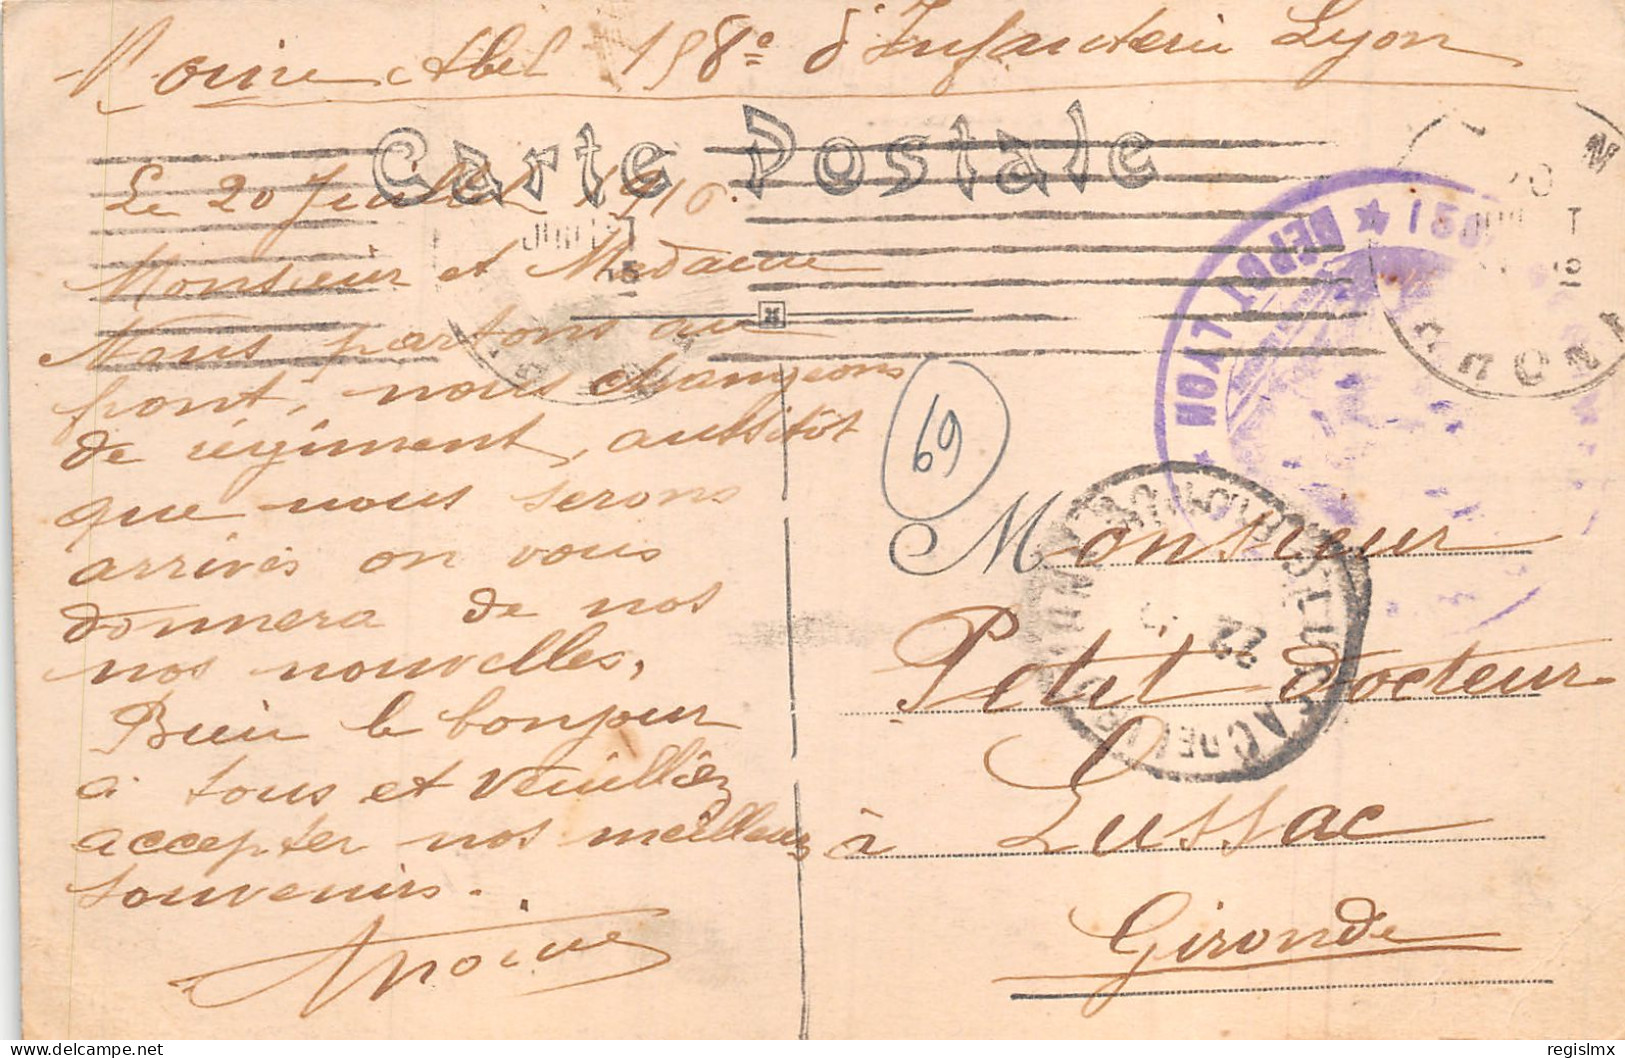 Noire Abel 158e d'Infanterie Lyon
Carte Postale
Le 20 Juillet 1916.
Monsieur et Madame
Nous partons au
front, nous changeons
de régiment, aussitôt
que nous serons
arrivés on vous
donnera de nos
nos nouvelles,
Bien le bonjour
à tous et veuilliez
accepter nos meilleurs
souvenirs.
ANoire
69
DEPOT LYON
158
JUILLET
22
Monsieur
Petit Docteur
à Lussac
Gironde
delcampe.net
regislmx